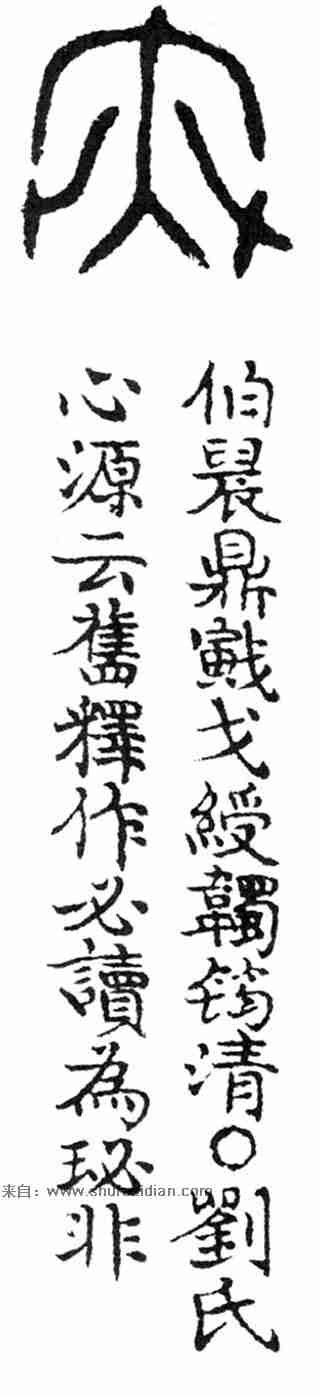 伯晨鼎戭戈綬韣筠清〇劉氏
心源云舊釋作必讀為珌非
来自：www.shufazidian.com